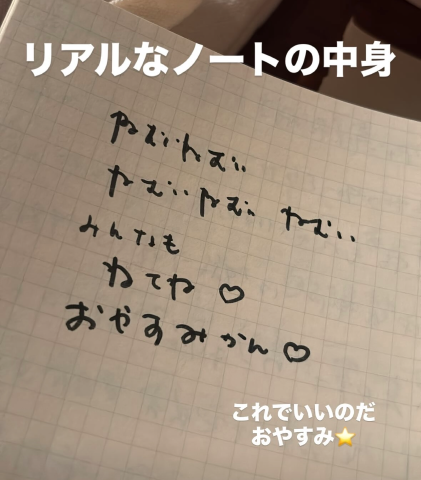 リアルなノートの中身
ねむいねむい
ねむいねむい ねむい
みんなも
ねてね♡
おやすみかん♡
これでいいのだ
おやすみ⭐